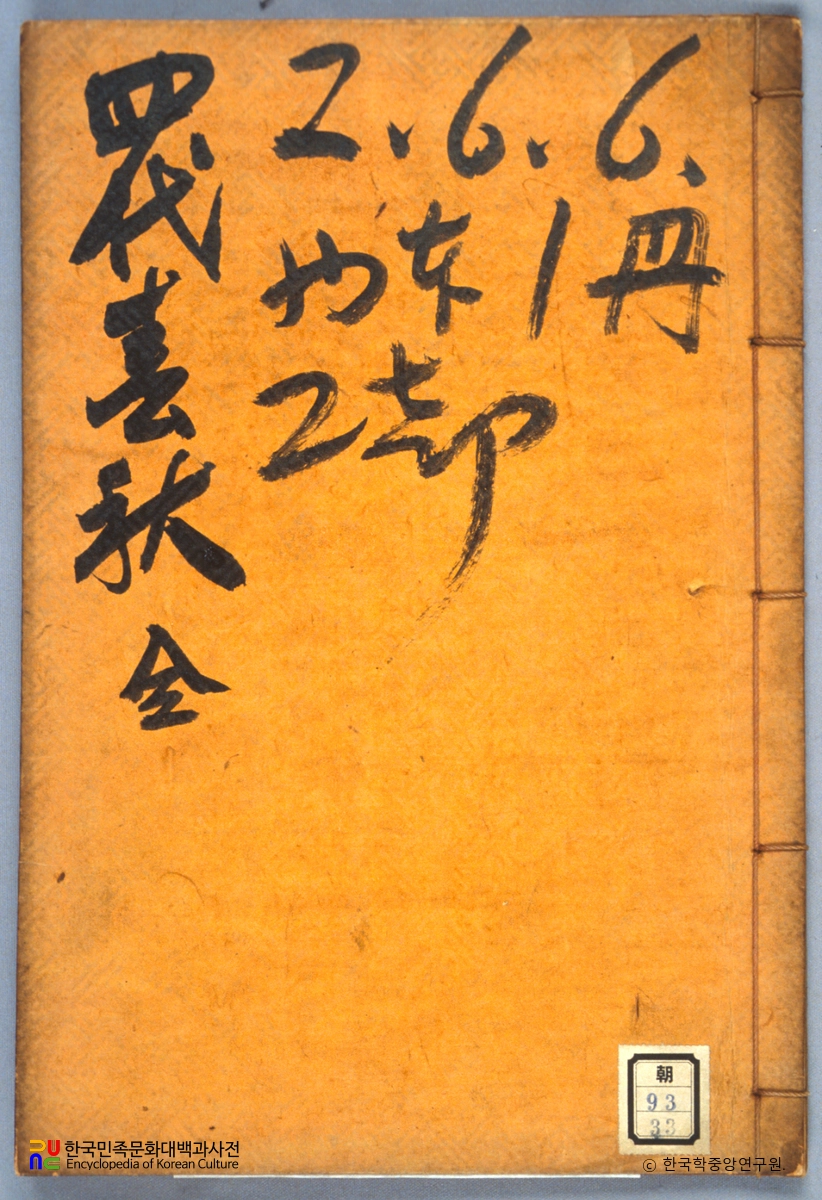 四代春秋 全
2.6.6.
本 1 冊
朝
93
33
한국민족문화대백과사전
Encyclopedia of Korean Culture
© 한국학중앙연구원.